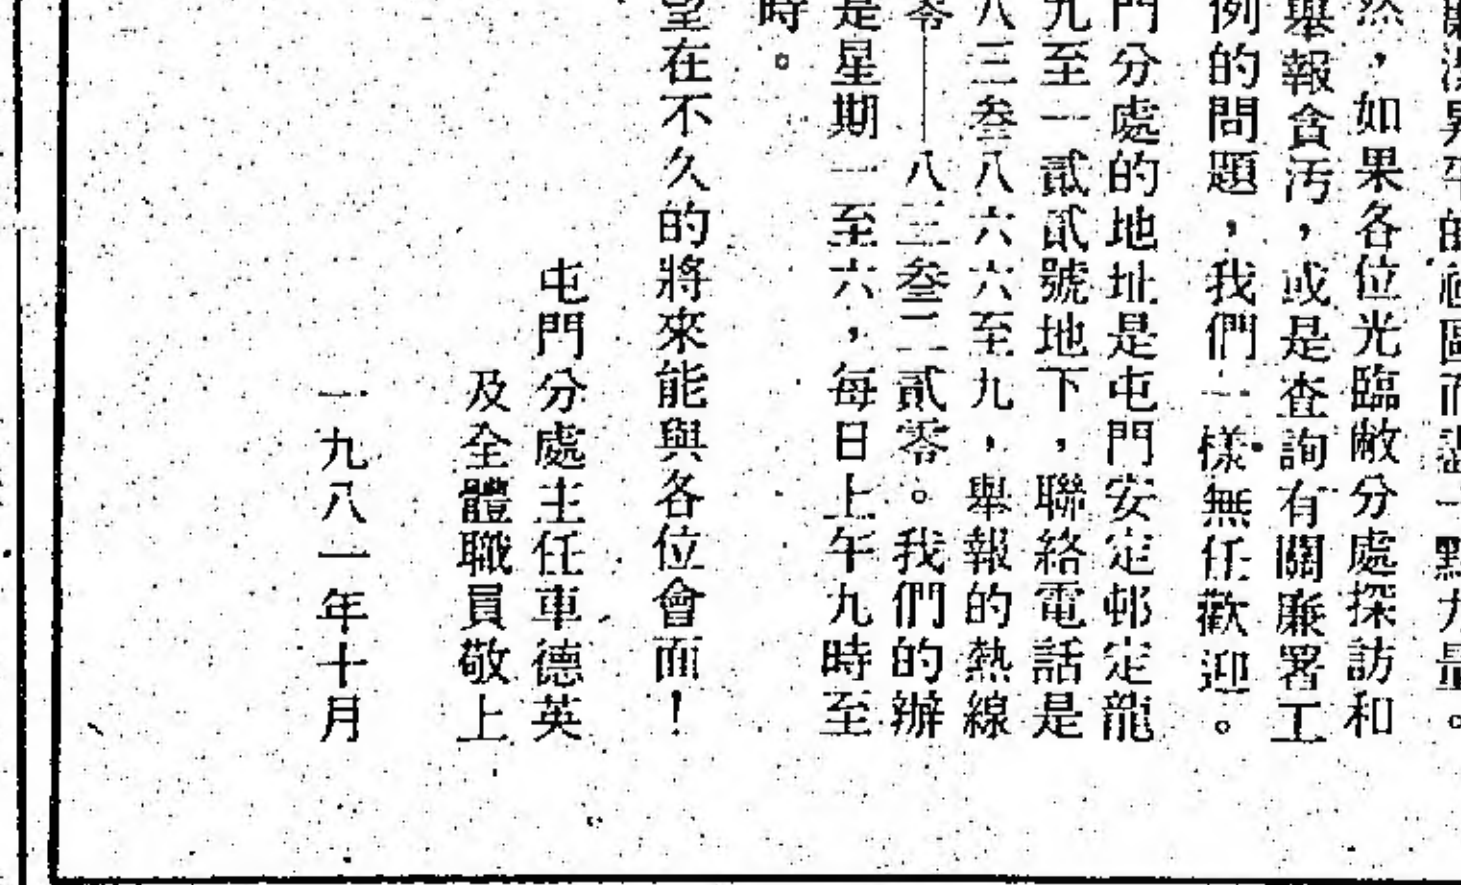 的社區而盡一點力量。
然，如果各位光臨敝分處探訪和
舉報貪污，或是查詢有關廉署工
例的問題，我們一樣無任歡迎。
門分處的地址是屯門安定邨定龍
九至一貳貳號地下，聯絡電話是
八三叁八六六至九，舉報的熱線
零——八三叁二貳零。我們的辦
是星期一至六，每日上午九時至
時。
望在不久的將來能與各位會面！
屯門分處主任車德英
及全體職員敬上
一九八一年十月